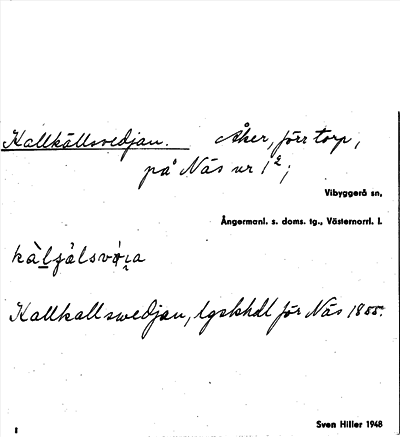 Kallkällsvedjan. Åker, förr torp,
på Näs nr 1²;
Vibyggerå sn,
Ångermanl. s. doms. tg., Västernorrl. l.
Kallkallswedjan, lgsbhdl för Näs 1855.
Sven Hiller 1948